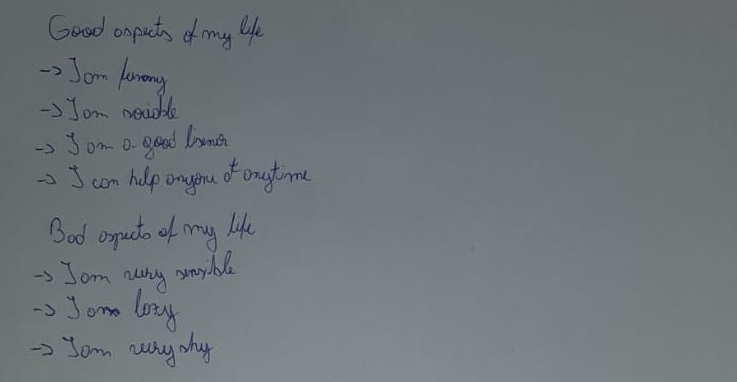 Good aspects of my life
-> I am funny
-> I am sociable
-> I am a good lisener
-> I can help anyone at anytime
Bad aspects of my life
-> I am very sensible
-> I am lazy
-> I am very shy